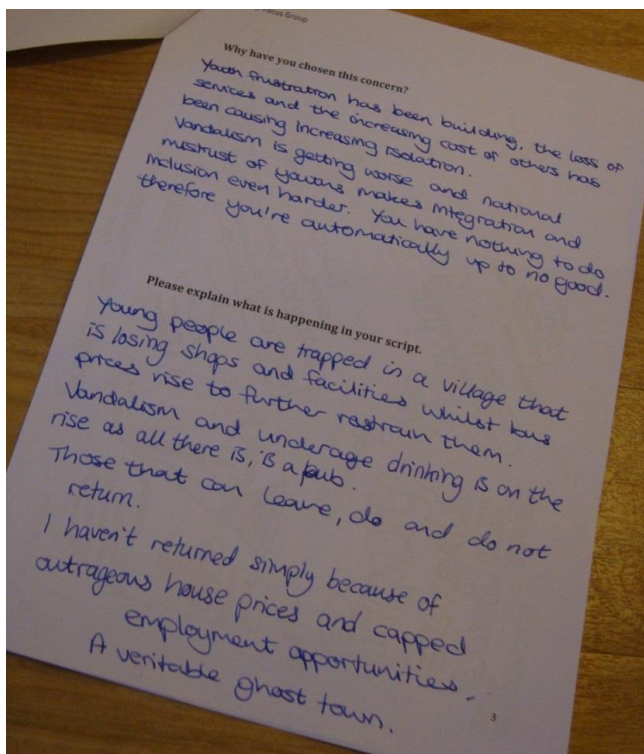 Focus Group
Why have you chosen this concern?
Youth frustration has been building, the loss of
services and the increasing cost of others has
been causing increasing isolation.
Vandalism is getting worse and national
mistrust of youths makes integration and
inclusion even harder. You have nothing to do
therefore you're automatically up to no good.
Please explain what is happening in your script.
Young people are trapped in a village that
is losing shops and facilities whilst bus
prices rise to further restrain them.
Vandalism and underage drinking is on the
rise as all there is, is a pub.
Those that can leave, do and do not
return.
I haven't returned simply because of
outrageous house prices and capped
employment opportunities.
A veritable ghost town.
3